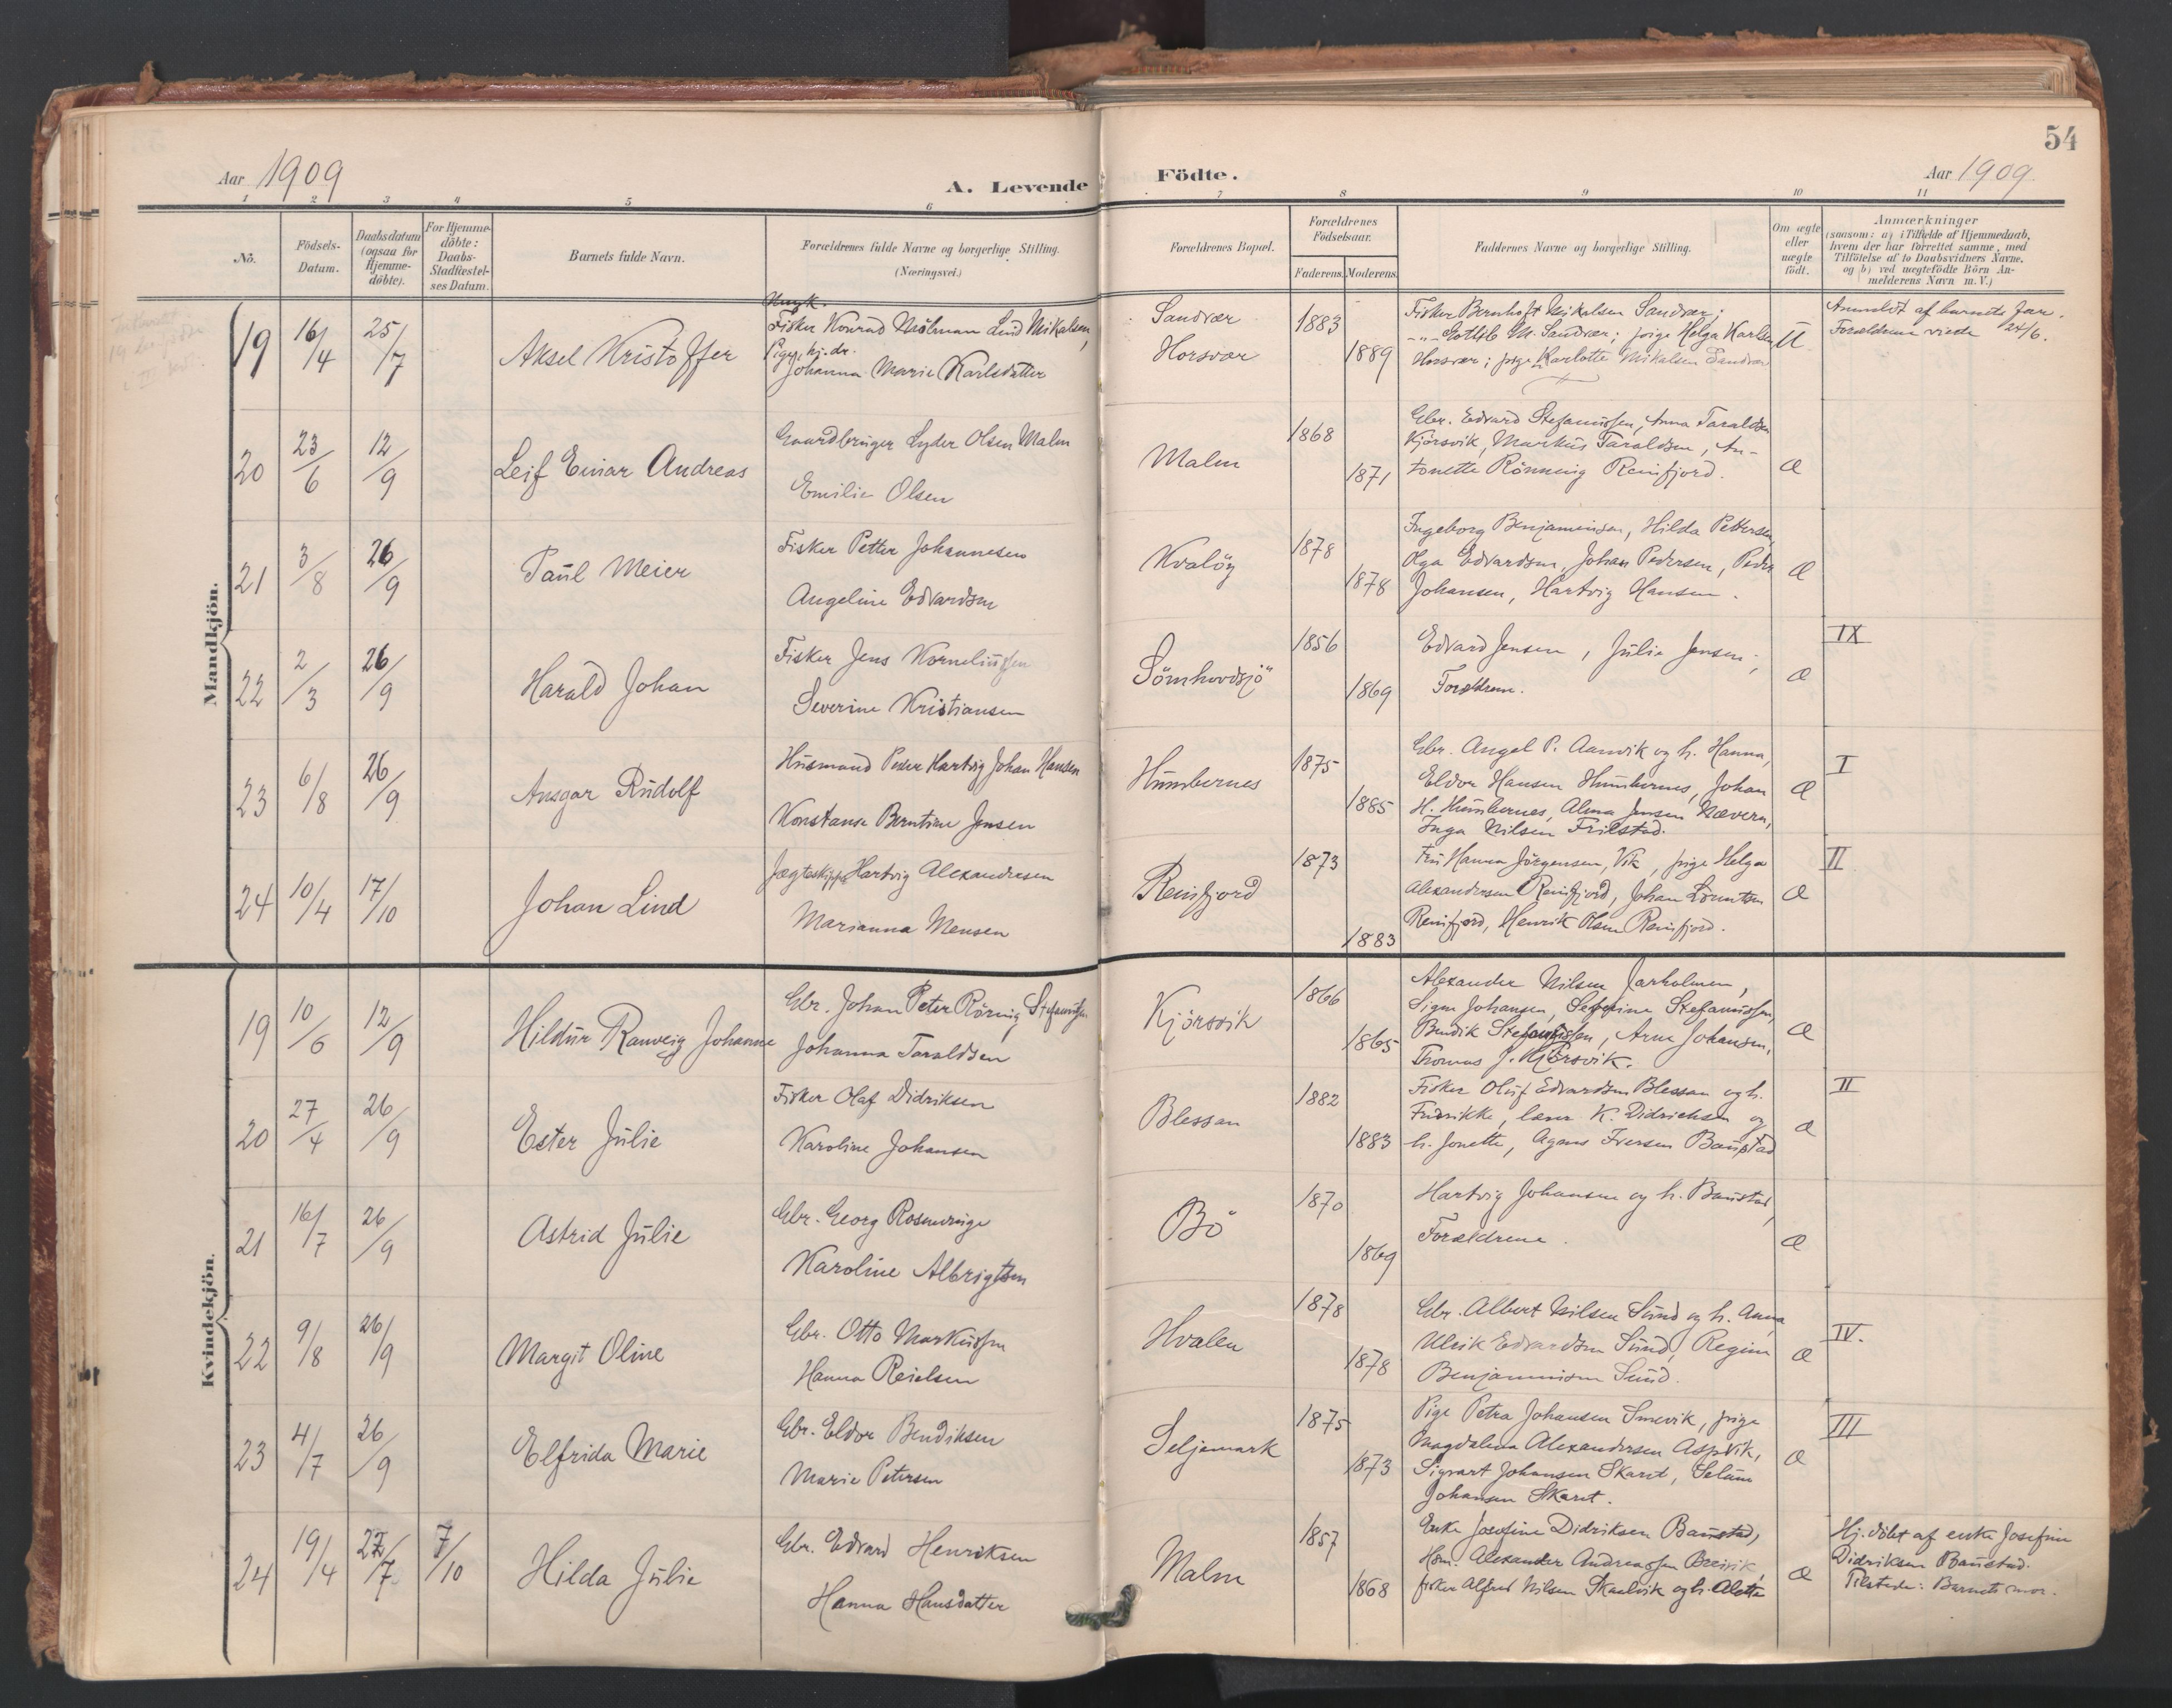 54
Aar 1909
A. Levende Födte.
Aar 1909
1 2 3 4 5 6 7 8 9 10 11
Nö.
Födsels-Datum.
Daabsdatum (ogsaa for Hjemme-döbte).
For Hjemme-döbte: Daabs-Stadfæstel-ses Datum.
Barnets fulde Navn.
Forældrenes fulde Navne og borgerlige Stilling. (Næringsvei.)
Forældrenes Bopæl.
Forældrenes Födselsaar.
Faderens. Moderens.
Faddernes Navne og borgerlige Stilling.
Om ægte eller uægte födt.
Anmærkninger
(saasom: a) i Tilfælde af Hjemmedaab,
hvem der har forrettet samme, med
Tilföielse af to Daabsvidners Navne,
og b) ved uægtefödte Börn An-
melderens Navn m. V.)
Mandkjön.
19 16/4 25/7 Aksel Kristoffer
Ungk.
Fisker Konrad Lind Mikalsen,
Pige, hj. dr.
Johanna Marie Karlsdatter
Sandvær
Horsvær
1883
1889
Fisker Bernhoft Mikalsen Sandvær;
-"- Gotlib M. Sandvær; pige Helga Karlsen
Horsvær; pige Karlotte Mikalsen Sandvær
U
Anmeldt af barnets far.
Forældrene viede 24/6.
20 23/6 12/9 Leif Einar Andreas
Gaardbruger Lyder Olsen Malm
Emilie Olsen
Malm
1868
1871
Gbr. Edvard Stefanussen, Anna Taraldsen
Kjörsvik, Markus Taraldsen, An-
tonette Rönning Reinfjord.
Æ
21 3/8 26/9 Paul Meier
Fisker Petter Johannesen
Angeline Edvardsen
Kvalöy
1878
1878
Ingeborg Benjaminsen, Hilda Pettersen,
Olga Edvardsen, Johan Pedersen, Peder
Johansen, Hartvig Hansen.
Æ
22 2/3 26/9 Harald Johan
Fisker Jens Korneliussen
Severine Kristiansen
Sömhovdsjö
1856
1869
Edvard Jensen, Julie Jensen,
Forældrene.
Æ
IX
23 6/8 26/9 Ansgar Rudolf
Husmand Peder Hartvig Johan Hansen
Konstanse Berntine Jensen
Humbernes
1875
1885
Gbr. Angel P. Aarsvik og h. Hanna,
Eldor Hansen Humbernes, Johan
H. Humbernes, Alma Jensen Nævern,
Inga Nilsen Frilstad.
Æ
I
24 10/4 17/10 Johan Lind
Jægteskipper Hartvig Alexandersen
Marianna Monsen
Reinfjord
1873
1883
Fru Hanna Jörgensen, Vik, pige Helga
Alexandersen Reinfjord, Johan
Reinfjord, Henrik Olsen Reinfjord.
Æ
II
Kvindekjön.
19 10/6 12/9 Hildur Ranveig Johanne
Gbr. Johan Peter Rörnig Stefanussen
Johanna Taraldsen
Kjörsvik
1866
1865
Alexander Nilsen Jarholmen,
Signe Johansen, Stefanussen,
Bendik Stefanussen, Arne Johansen,
Thomas J. Kjörsvik.
Æ
20 27/4 26/9 Ester Julie
Fisker Olaf Didriksen
Karoline Johansen
Blessan
1882
1883
Fisker Oluf Edvardsen Blessan og h.
Fredrikke, lærer K. Didrichsen og
h. Jonette, Agans Iversen Baustad
Æ
II
21 16/7 26/9 Astrid Julie
Gbr. Georg Rosenvinge
Karoline Albrigtsen
Bö
1870
1869
Hartvig Johansen og h. Baustad,
Forældrene.
Æ
22 9/8 26/9 Margit Oline
Gbr. Otto Markussen
Hanna Reielsen
Hvalen
1878
1878
Gbr. Albert Nilsen Sund og h. Anna,
Ulrik Edvardsen Sund, Regine
Benjaminsen Sund.
Æ
IV.
23 4/7 26/9 Elfrida Marie
Gbr. Eldor Bendiksen
Marie Petersen
Seljemark
1875
1873
Pige Petra Johansen Smevik, pige
Magdalena Alexandersen Aspvik,
Sigvart Johansen Skaret,
Johansen Skaret.
Æ
III
24 19/4 27/7 7/10 Hilda Julie
Gbr. Edvard Henriksen
Hanna Hansdatter
Malm
1857
1868
Enke Josefine Didriksen Baustad,
Hsm. Alexander Andreassen Breivik,
fisker Alfred Nilsen Skaelvik og h. Aletta
Æ
Hj. döbt af enke Josefine
Didriksen Baustad.
Tilstede: Barnets mor.